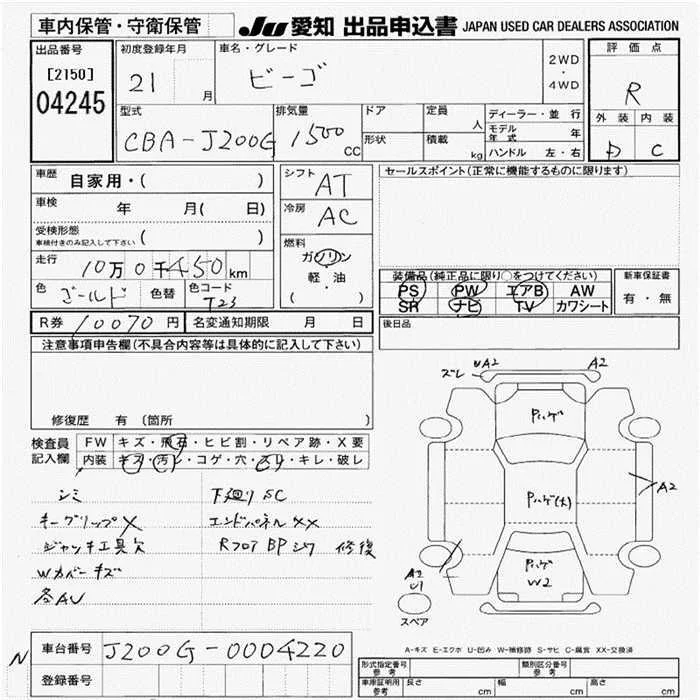 車内保管・守衛保管
JU 愛知 出品申込書 JAPAN USED CAR DEALERS ASSOCIATION
出品番号
[2150]
04245
初度登録年月
21 月
車名・グレード
ビーゴ
2WD
・
4WD
評価点
R
外装 内装
D C
型式
CBA-J200G
排気量
1500 CC
ドア
形状
定員 人
積載 kg
ディーラー・並行
モデル年式 年
ハンドル 左・右
車歴 自家用・( )
車検 年 月( 日)
受検形態
車検付きのみ記入して下さい ( )
走行 10万0千450km
色 ゴールド 色替 色コード T23
シフト AT
冷房 AC
燃料
ガソリン
軽・油
( )
セールスポイント(正常に機能するものに限ります)
装備品(純正品に限り○をつけてください)
PS PW エアB AW
SR ナビ TV カワシート
新車保証書
有・無
R券 10070円 名変通知期限 月 日
後日品
注意事項申告欄(不具合内容等は具体的に記入して下さい)
修復歴 有 (箇所 )
検査員記入欄
FW キズ・飛石・ヒビ割・リペア跡・X要
内装 キズ・汚レ・コゲ・穴・スリ・キレ・破レ
シミ
キーグリップX
ジャッキ工具欠
Wカバーキズ
各AU
下廻りSC
エンドパネルXX
Rフロア BPシワ 修復
ズレ UA2 A2
Pハゲ
Pハゲ(大)
A2
Pハゲ
W2
A2
U1
スペア
A-キズ E-エクボ U-凹み W-補修跡 S-サビ C-腐蝕 XX-交換済
N
車台番号 J200G-0004220
登録番号
形式指定番号参考
類別区分番号参考
車庫証明用参考 長さ cm 幅 cm 高さ cm